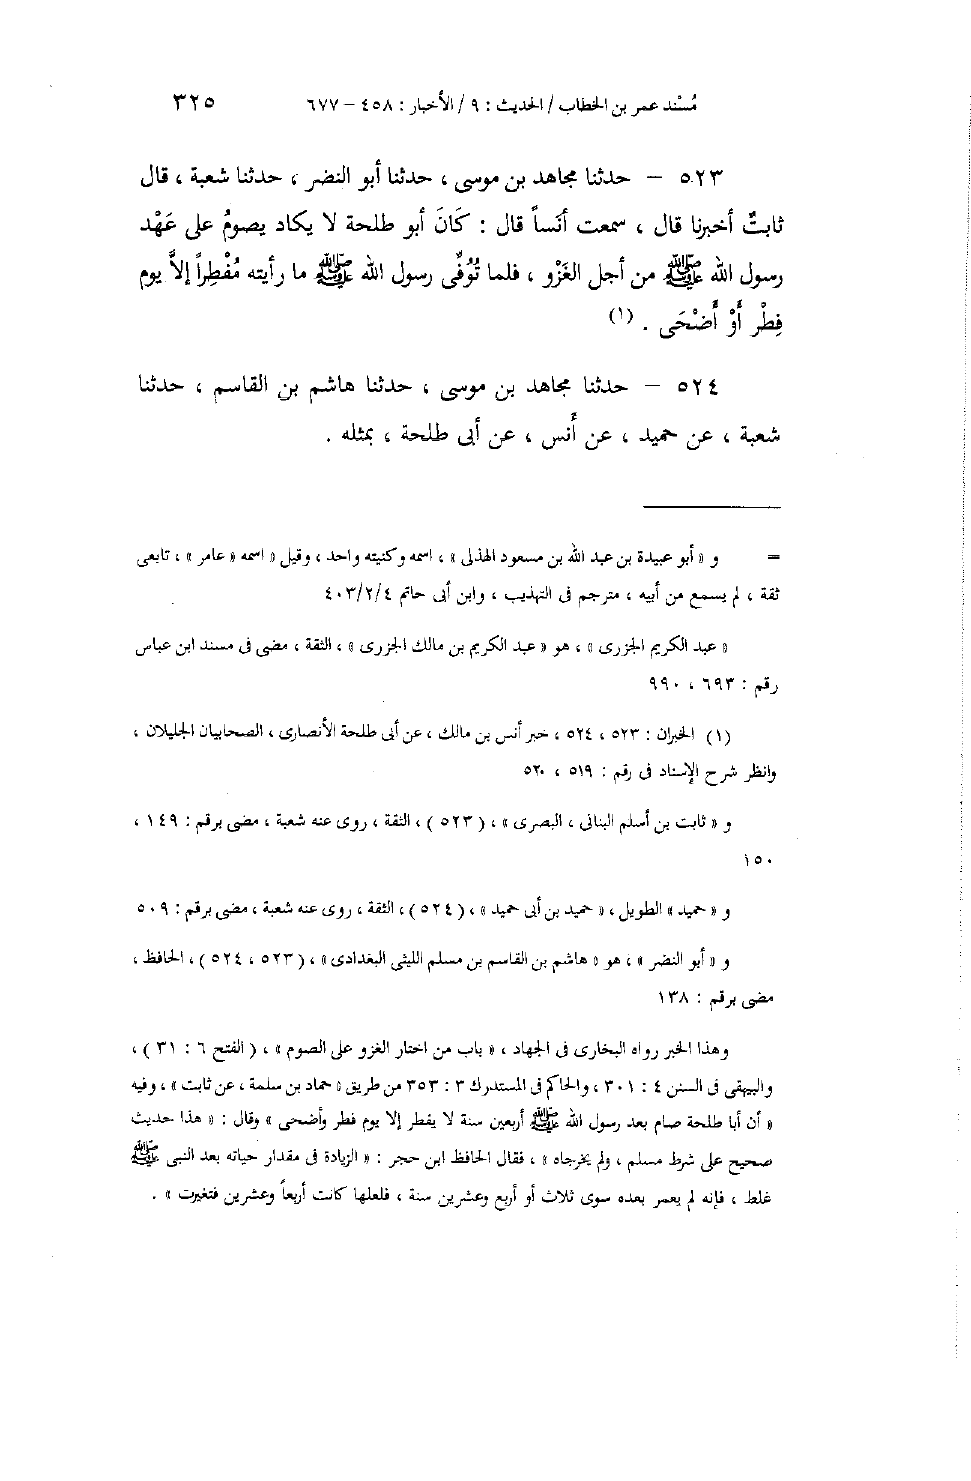 مُسْند عمر بن الخطاب / الحديث : ٩ / الأخبار : ٤٥٨ – ٦٧٧ ٣٢٥
٥٢٣ – حدثنا مجاهد بن موسى ، حدثنا أبو النضر ، حدثنا شعبة ، قال
ثابتٌ أخبرنا قال ، سمعت أنَساً قال : كَانَ أبو طلحة لا يكاد يصومُ على عَهْد
رسول الله ﷺ من أجل الغَزْو ، فلما تُوُفِّى رسول الله ﷺ ما رأيته مُفْطِراً إلاَّ يوم
فِطْر أَوْ أَضْحَى . (١)
٥٢٤ – حدثنا مجاهد بن موسى ، حدثنا هاشم بن القاسم ، حدثنا
شعبة ، عن حميد ، عن أَنس ، عن أبى طلحة ، بمثله .
= و « أبو عبيدة بن عبد الله بن مسعود الهذلى » ، اسمه وكنيته واحد ، وقيل « اسمه « عامر » ، تابعى
ثقة ، لم يسمع من أبيه ، مترجم فى التهذيب ، وابن أبى حاتم ٤/٢/٤٠٣
« عبد الكريم الجزرى » ، هو « عبد الكريم بن مالك الجزرى » ، الثقة ، مضى فى مسند ابن عباس
رقم : ٦٩٣ ، ٩٩٠
(١) الخبران : ٥٢٣ ، ٥٢٤ ، خبر أنس بن مالك ، عن أبى طلحة الأنصارى ، الصحابيان الجليلان ،
وانظر شرح الإسناد فى رقم : ٥١٩ ، ٥٢٠
و « ثابت بن أسلم البنانى ، البصرى » ، ( ٥٢٣ ) ، الثقة ، روى عنه شعبة ، مضى برقم : ١٤٩ ،
١٥٠
و « حميد » الطويل ، « حميد بن أبى حميد » ، ( ٥٢٤ ) ، الثقة ، روى عنه شعبة ، مضى برقم : ٥٠٩
و « أبو النضر » ، هو « هاشم بن القاسم بن مسلم الليثى البغدادى » ، ( ٥٢٣ ، ٥٢٤ ) ، الحافظ ،
مضى برقم : ١٣٨
وهذا الخبر رواه البخارى فى الجهاد ، « باب من اختار الغزو على الصوم » ، ( الفتح ٦ : ٣١ ) ،
والبيهقى فى السنن ٤ : ٣٠١ ، والحاكم فى المستدرك ٣ : ٣٥٣ من طريق « حماد بن سلمة ، عن ثابت » ، وفيه
« أن أبا طلحة صام بعد رسول الله ﷺ أربعين سنة لا يفطر إلا يوم فطر وأضحى » وقال : « هذا حديث
صحيح على شرط مسلم ، ولم يخرجاه » ، فقال الحافظ ابن حجر : « الزيادة فى مقدار حياته بعد النبى ﷺ
غلط ، فإنه لم يعمر بعده سوى ثلاث أو أربع وعشرين سنة ، فلعلها كانت أربعاً وعشرين فتغيرت » .